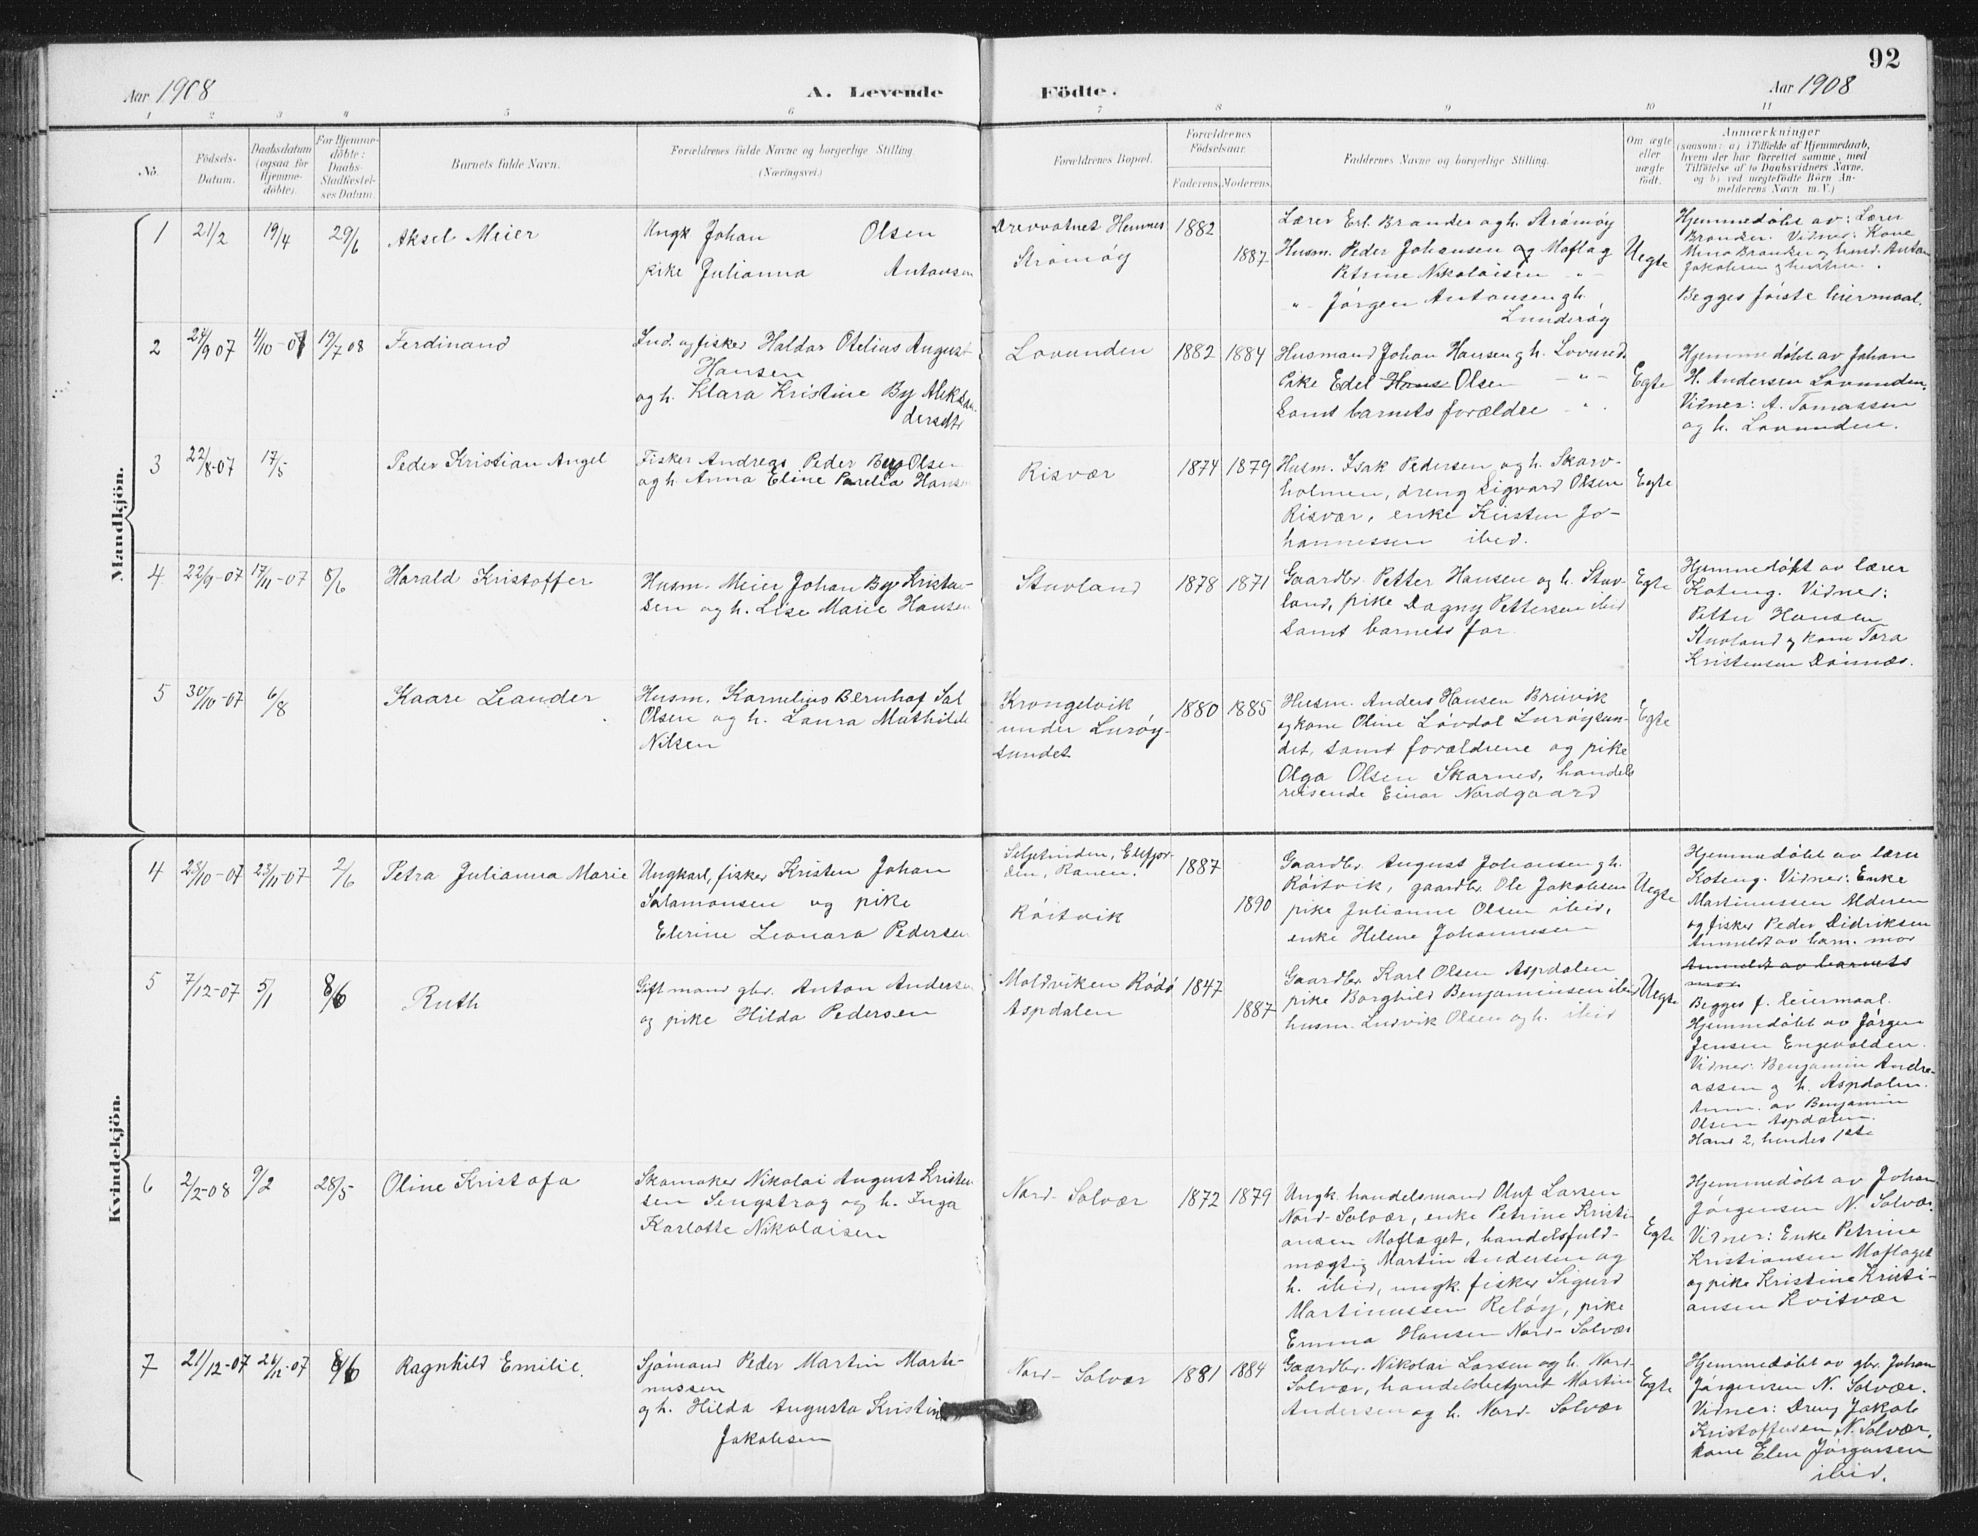 92
Aar 1908
A. Levende
Födte.
Aar 1908
1 2 3 4 5 6 7 8 9 10 11
No.
Födsels-
Datum.
Daabsdatum
(ogsaa for
Hjemme-
döbte).
For Hjemme-
döbte:
Daabs-
Stadfæstel-
ses Datum.
Barnets fulde Navn.
Forældrenes fulde Navne og borgerlige Stilling.
(Næringsvei.)
Forældrenes Bopæl.
Forældrenes
Födselsaar.
Faderens.
Moderens.
Faddernes Navne og borgerlige Stilling.
Om ægte
eller
uægte
födt.
Anmærkninger
(saasom: a) i Tilfælde af Hjemmedaab,
hvem der har forrettet samme, med
Tilföielse af to Daabsvidners Navne,
og b) ved uægtefödte Börn An-
melderens Navn m. V.)
Mandkjön.
1 21/2 19/4 29/6 Aksel Meier
Ungk Johan Olsen
pike Julianna Antonsen
Drevvatnet Hemnes
Strømøy
1882
1887
Lærer Erl. Brander og h. Strømøy
Husm. Peder Johansen og Moflag
Petrine Nikolaisen -"-
" Jørgen Antonsen gh.
Lunderøy
Uegte
Hjemmedøbt av: Lærer
Brander. Vidner: Kone
Brander og husm. Anton
Jakobsen og hustru.
Begges første leiermaal.
2 24/9 07 4/10-07 19/7 08 Ferdinand
Ind. og fisker Haldor Otelius August
Hansen
og h. Klara Kristine By Aleksan-
dersdtr
Lovunden
1882 1884
Husmand Johan Hansen gh. Lovund.
Pike Edel Hans Olsen -"-
Samt barnets forældre "
Egte
Hjemmedøbt av Johan
H. Andersen Lovunden.
Vidner: A. Tomassen
og h. Lovunden.
3 22/8-07 17/5 Peder Kristian Angel
Fisker Andreas Peder By Olsen
og h. Anna Eline Parelia Hansen
Risvær
1874 1879
Husm. Isak Pedersen og h. Skarv-
holmen, dreng Sigvard Olsen
Risvær, enke Kirsten Jo-
hannessen ibid.
Egte
4 22/9-07 17/11-07 8/6 Harald Kristoffer
Husm. Meier Johan By Kristia-
sen og h. Lise Marie Hansen
Stuvland
1878 1871
Gaardbr. Petter Hansen og h. Stuv-
land, pike Dagny Pettersen ibid
samt barnets far.
Egte
Hjemmedøbt av lærer
Koteng. Vidner:
Petter Hansen
Stuvland og kone Tora
Kristensen Dønnæs.
5 30/10-07 6/8 Kaare Leander
Husm. Kornelius Bernhof Sal
Olsen og h. Laura Mathilde
Nilsen
Krongelvik
under Lurøy-
sundet
1880 1885
Husm. Anders Hansen Breivik
og kone Oline Løvdal Lurøysun-
det, samt forældrene og pike
Olga Olsen Skarnes, handels
reisende Einar Nordgaard
Egte
Kvindekjön.
4 23/10-07 23/11-07 2/6 Petra Julianna Marie
Ungkarl, fisker Kristen Johan
Salamonsen og pike
Elerine Leonora Pedersen
Seljetinden, Elsfjor-
den, Ranen.
Røitvik
1887
1890
Gaardbr. August Johansen gh.
Røitvik, gaardbr. Ole Jakobsen
pike Julianne Olsen ibid,
enke Helene Johannesen
Uegte
Hjemmedøbt av lærer
Koteng. Vidner: Enke
Martinussen Alderen
og fisker Peder Didriksen
Anmeldt av barn. mor
5 7/12-07 5/1 8/6 Ruth
Gift mand gbr. Anton Andersen
og pike Hilda Pedersen
Moldviken Rødø
Aspdalen
1847
1887
Gaardbr. Karl Olsen Aspdalen
pike Borghild Benjaminsen ibid
husm. Ludvik Olsen og h. ibid
Uegte
Anmeldt av barnets
mor
Begges f. leiermaal.
Hjemmedøbt av Jørgen
Jensen Engevolden.
Vidner: Benjamin Andre-
assen og h. Aspdalen.
Anm. av Benjamin
Olsen Aspdalen.
Hans 2, hendes 1ste
6 2/2-08 9/2 28/5 Oline Kristofa
Skomaker Nikolai August Kristen
sen Sengstrag og h. Inga
Karlotte Nikolaisen
Nord-Solvær
1872 1879
Ungk. handelsmand Oluf Larsen
Nord-Solvær, enke Petrine Kristi-
ansen Moflaget, handelsfuld-
mægtig Martin Andersen og
h. ibid, ungk. fisker Sigurd
Martinussen Reløy, pike
Emma Hansen Nord-Solvær
Egte
Hjemmedøbt av Johan
Jørgensen N. Solvær.
Vidner: Enke Petrine
Kristiansen Moflaget
og pike Kristine Kristi-
ansen Kvitvær
7 21/12-07 26/12-07 8/6 Ragnhild Emilie.
Sjømand Peder Martin Marti-
nussen
og h. Hilda Augusta Kristine
Jakobsen
Nord-Solvær
1881 1884
Gaardbr. Nikolai Larsen og h. Nord-
Solvær, handelsbetjent Martin
Andersen og h. Nord-Solvær
Egte
Hjemmedøbt av gbr. Johan
Jørgensen N. Solvær.
Vidner: Dreng Jakob
Kristoffersen, N. Solvær,
kone Elen Jørgensen
ibid.